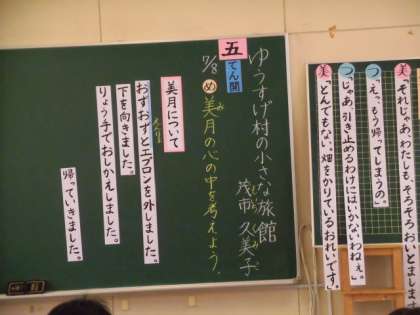 五
てん開
ゆうすげ村の小さな旅館
茂市 久美子
7/8 め 美月の心の中を考えよう。
美月について
おずおずとエプロンを外しました。
下を向きました。
りょう手でおしかえしました。
帰っていきました。
美「それじゃあ、わたしも、そろそろおいとまします
つ「えっ、もう帰ってしまうの。
つ「じゃあ、引き止めるわけにはいかないわねえ。」
美「とんでもない。畑をかりているおれいです。